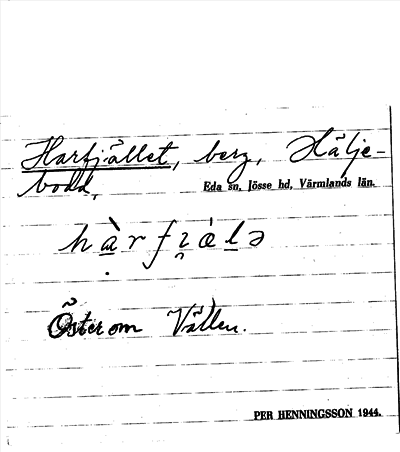 Harfjället, berg, Hälje-
bodd,
Eda sn, Jösse hd, Värmlands län.
Öster om Vällen.
PER HENNINGSSON 1944.